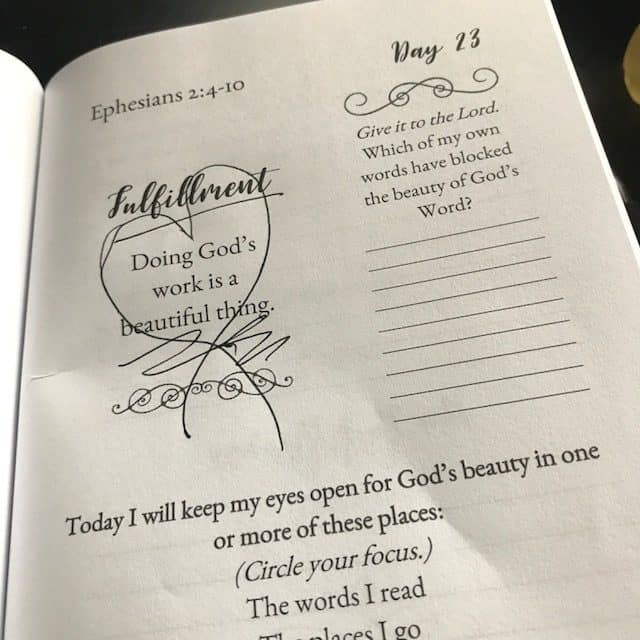 Ephesians 2:4-10
Fulfillment
Doing God's
work is a
beautiful thing.
Day 23
Give it to the Lord.
Which of my own
words have blocked
the beauty of God's
Word?
Today I will keep my eyes open for God's beauty in one
or more of these places:
(Circle your focus.)
The words I read
The places I go